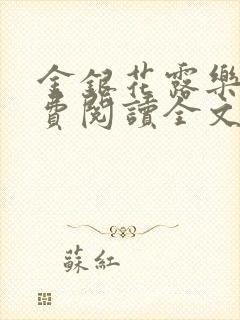 金銀花露樂
費閱讀全文
蘇紅